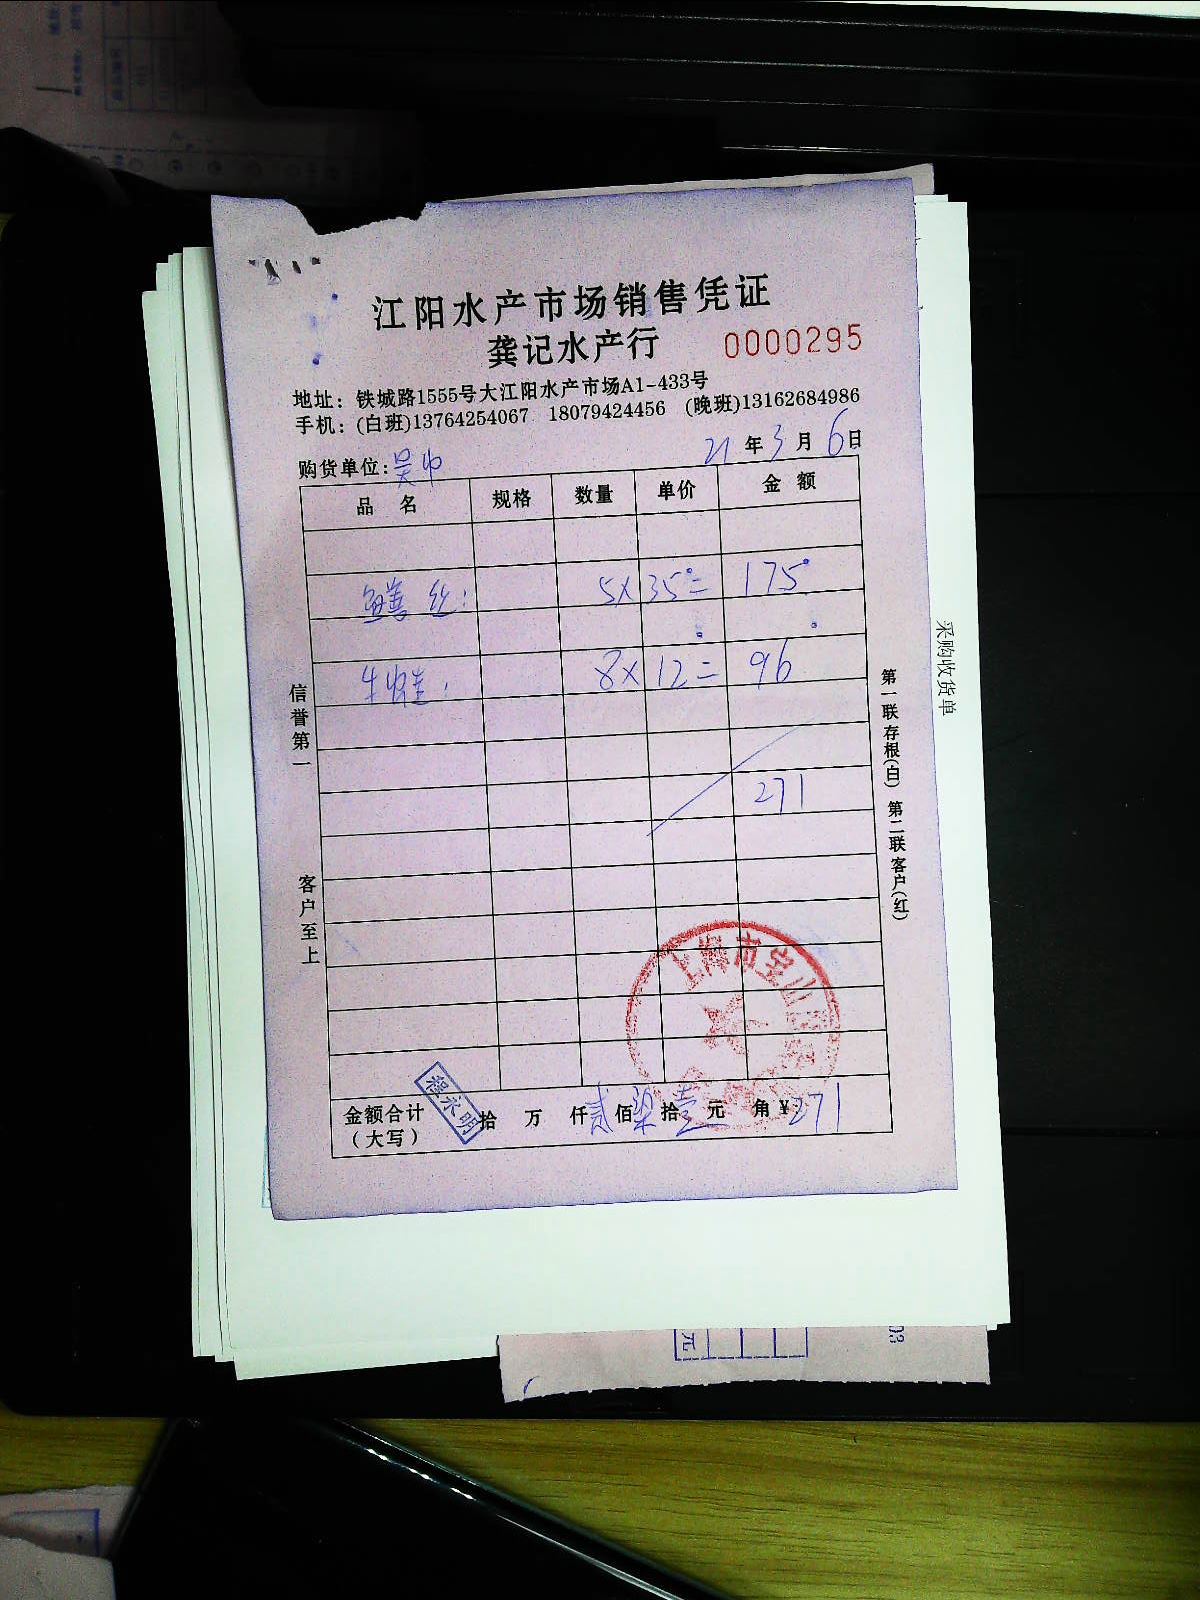 江阳水产市场销售凭证
龚记水产行 0000295
地址：铁城路1555号大江阳水产市场A1-433号
手机：(白班)13764254067 18079424456 (晚班)13162684986
购货单位: 21年3月6日
品名 规格 数量 单价 金额
鳝丝: 5× 35°= 175°
牛蛙: 8× 12= 96
271
金额合计（大写） 拾 万 仟贰佰柒拾壹元 角￥271
程永明
信誉第一
客户至上
第一联存根(白) 第二联客户(红)
上海市宝山
采购收货单
元
03